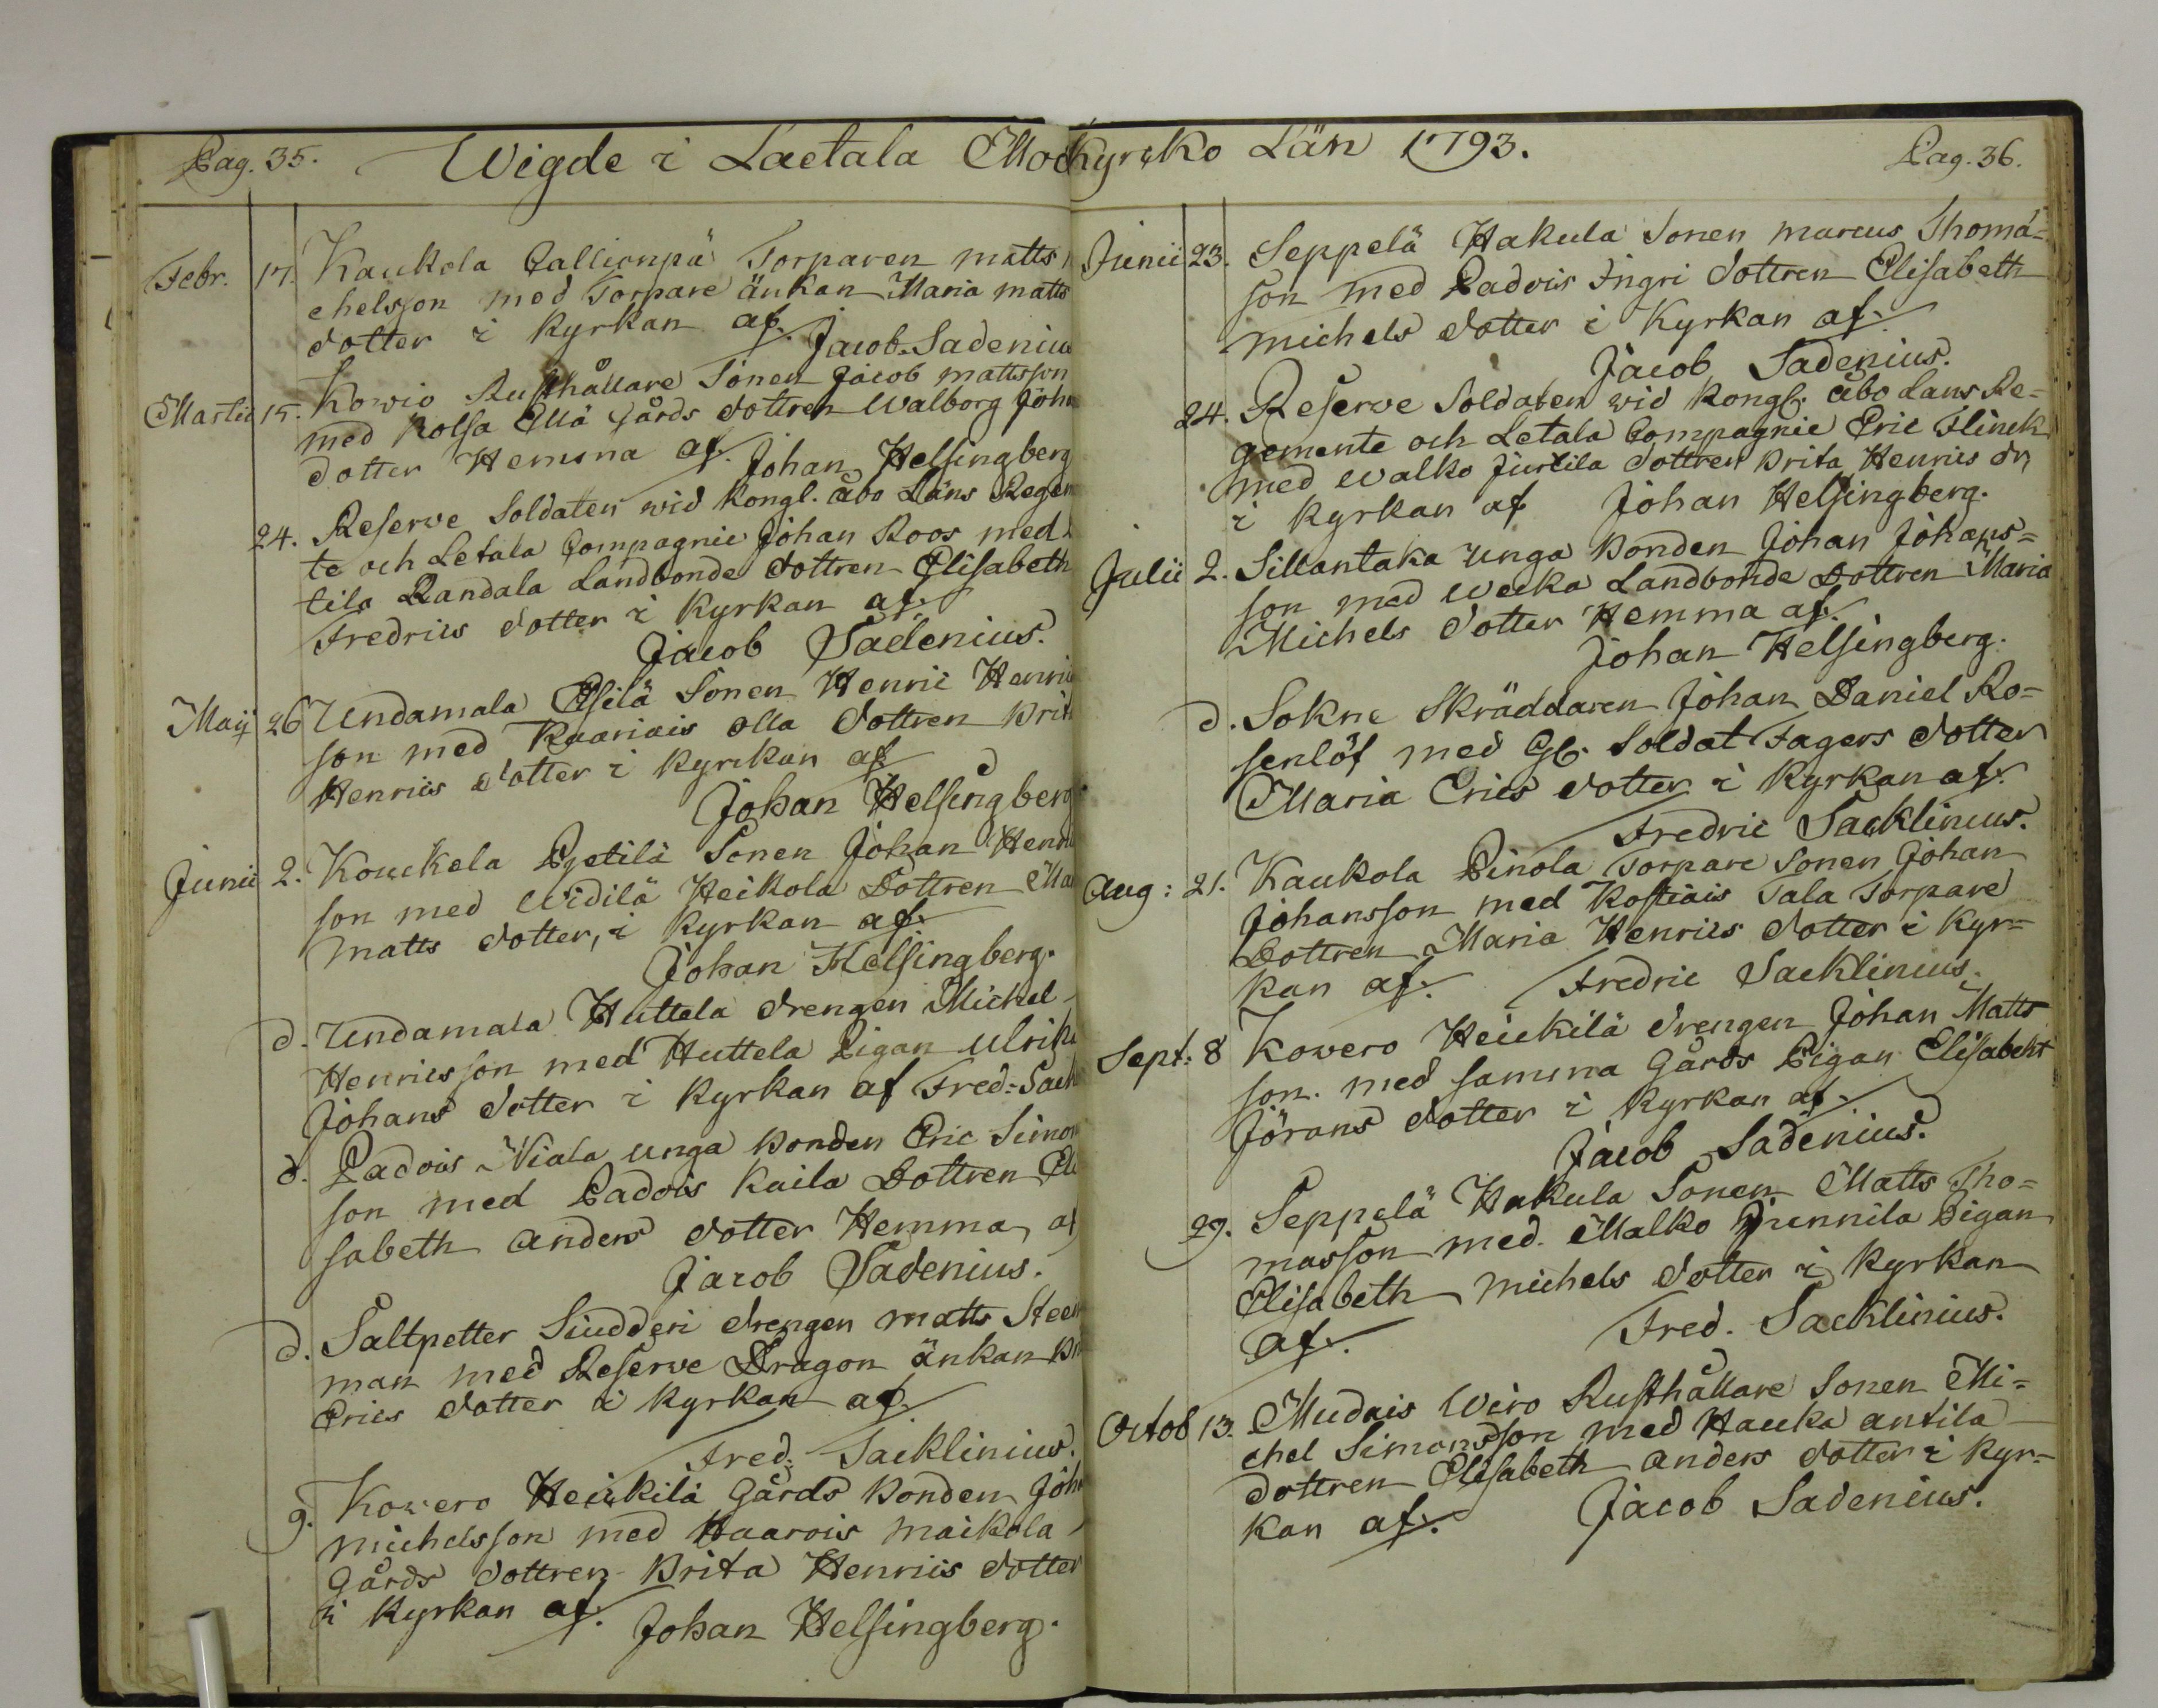 Pag. 35. Wigde i Laetala Mockyrko Län 1793. Pag. 36.
Febr. 17. Kaukola Callionpä Torparen matts
chelsson med Torpare änkan Maria matts
dotter i Kyrkan af. Jacob Sadenius
Martii 15. Kowio Rusthållare Sonen Jacob mattsson
med Kolsa Ellä Gårds dottren Walborg Joha
dotter Hemma af. Johan Helsingberg
24. Reserve Soldaten wid Kongl. åbo Läns Regem
te och Letala Compagnie Johan Roos med
tila Randala Landbonde dottren Elisabeth
Fredrics dotter i Kyrkan af.
Jacob Sadenius.
Maij 26 Undamala Esilä Sonen Henric Henric
son med Kaariais olla dottren Brit
Henrics dotter i Kyrckan af
Johan Helsingberg
Junii 2. Kouckela Pyetilä Sonen Johan Henric
son med Widilä Heikola Dottren Mar
matts dotter, i Kyrkan af.
Johan Helsingberg.
d. Undamala Huttela drengen Michel
Henricsson med Huttela Pigan Ulrika
Johans dotter i Kyrkan af Fred: Sack
d. Padois Niala unga Bonden Eric Simon
son med Padois Kaila Dottren Eli
sabeth anders dotter Hemma af
Jacob Sadenius.
d. Saltpetter Siudderi drengen matts Steen
man med Reserve Dragon änkan Bri
Erics dotter i Kyrkan af.
Fred. Sacklinius.
9. Kowero Heickilä Gårds Bonden Joha
michelsson med Haarois maikola
Gårds dottren Brita Henrics dotter
i Kyrkan af. Johan Helsingberg.
Junii 23. Seppelä Hakula Sonen marcus Thoma=
son med Padois Ingri dottren Elisabeth
michels dotter i Kyrkan af.
Jacob Sadenius.
24. Reserve Soldaten wid Kongl. åbo Lans Re=
gemente och Letala Compagnie Eric Flinck
med Walko Jurtila dottren Brita Henrics dr,
i Kyrkan af Johan Helsingberg.
Julii 2. Sillantaka unga Bonden Johan Johans=
son med Wecka Landbonde Dottren Maria
Michels dotter Hemma af.
Johan Helsingberg.
d. Sokne Skräddaren Johan Daniel Ro=
senlöf med Gl. Soldat Fagers dotter
Maria Erics dotter i Kyrkan af.
Fredric Sacklinius.
Aug: 21. Kaukola Pinola Torpare Sonen Johan
Johansson med Kostiais Tala Torpare
Dottren Maria Henrics dotter i Kyr=
kan af. Fredric Sacklinius.
Sept: 8 Kowero Heickilä drengen Johan Matts
son. med samma Gårds Pigan Elisabeht
Jörans dotter i Kyrkan af.
Jacob Sadenius.
29. Seppelä Hakula Sonen Matts Tho=
masson med Malko Junnila Pigan
Elisabeth michels dotter i Kyrkan
af. Fred. Sacklinius.
Octob 13. Mudais Wiro Rusthållare Sonen Mi=
chel Simonsson med Hauka antila
dottren Elisabeth anders dotter i Kyr=
kan af. Jacob Sadenius.